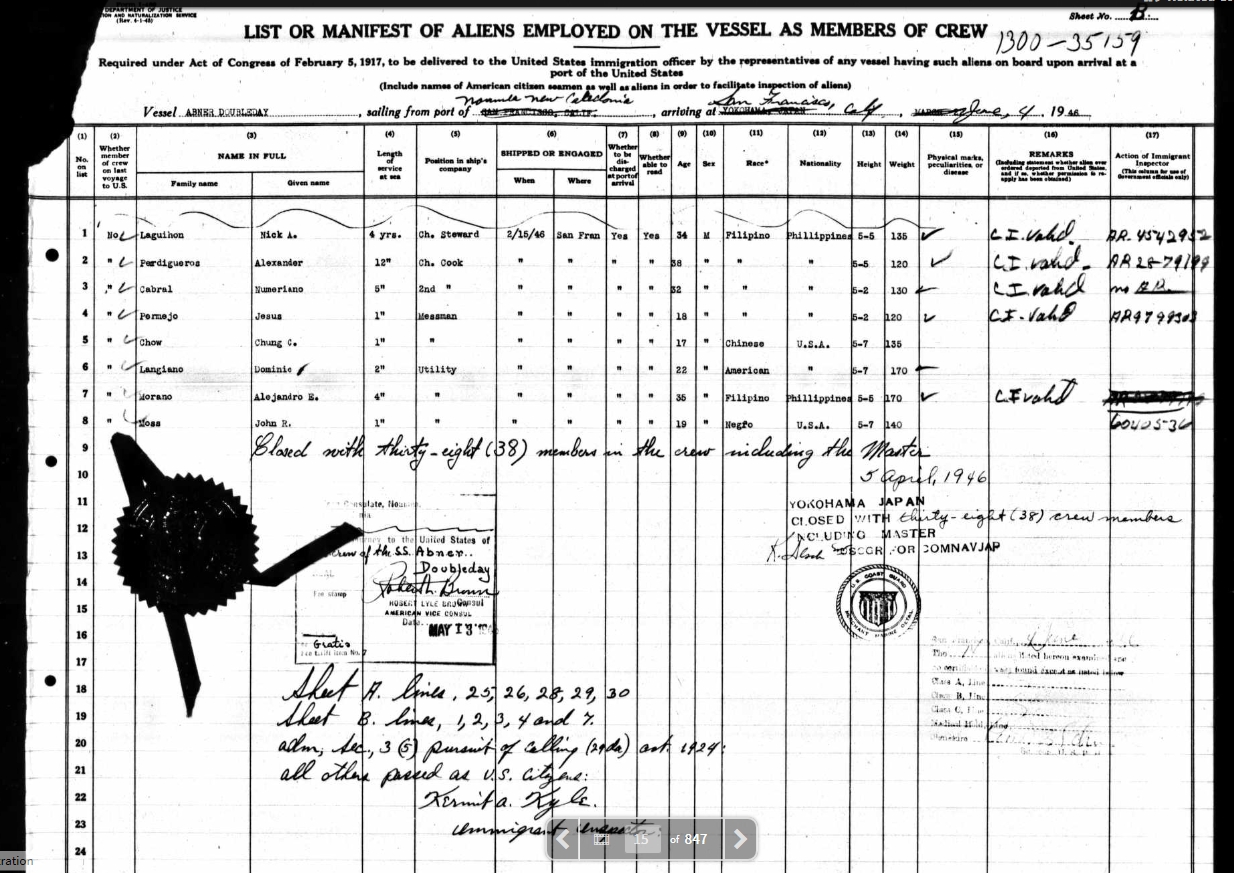 DEPARTMENT OF JUSTICE
ION AND NATURALIZATION SERVICE
(Rev. 4-1-45)
Sheet No. B
LIST OR MANIFEST OF ALIENS EMPLOYED ON THE VESSEL AS MEMBERS OF CREW
1300-35159
Required under Act of Congress of February 5, 1917, to be delivered to the United States immigration officer by the representatives of any vessel having such aliens on board upon arrival at a
port of the United States
(Include names of American citizen seamen as well as aliens in order to facilitate inspection of aliens)
Noumea New Caledonia San Francisco, Calif
Vessel ABNER DOUBLEDAY, sailing from port of SAN FRANCISCO, CALIF. arriving at YOKOHAMA, JAPAN, June, 4, 1946
(1) (2) (3) (4) (5) (6) (7) (8) (9) (10) (11) (12) (13) (14) (15) (16) (17)
No. on list
Whether member of crew on last voyage to U.S.
NAME IN FULL
Family name
Given name
Length of service at sea
Position in ship's company
SHIPPED OR ENGAGED
When
Where
Whether to be discharged at port of arrival
Whether able to read
Age
Sex
Race*
Nationality
Height
Weight
Physical marks, peculiarities or disease
REMARKS
(Including statement whether alien ever ordered deported from United States and if so, whether permission to reapply has been obtained)
Action of Immigrant Inspector
(This column for use of Government officials only)
1 No Laguihon Nick A. 4 yrs. Ch. Steward 2/15/46 San Fran Yes Yes 34 M Filipino Phillippines 5-5 135 C.I. valid. AR-4542952
2 " Perdigueros Alexander 12" Ch. Cook " " " " 38 " " " 5-5 120 C.I. valid. AR 28-79199
3 " Cabral Numeriano 5" 2nd " " " " " 32 " " " 5-2 130 C.I. valid no AR
4 " Pernejo Jesus 1" Messman " " " " 18 " " " 5-2 120 C.I-valid AR9799303
5 " Chow Chung C. 1" " " " " " 17 " Chinese U.S.A. 5-7 135
6 " Langiano Dominic 2" Utility " " " " 22 " American " 5-7 170
7 " Morano Alejandro E. 4" " " " " " 35 " Filipino Phillippines 5-5 170 C.I valid
8 " Moss John R. 1" " " " " " 19 " Negro U.S.A. 5-7 140 6040536
9 Closed with thirty-eight (38) members in the crew including the Master
10 5 April, 1946
11 YOKOHAMA JAPAN
12 CLOSED WITH thirty-eight (38) crew members
INCLUDING MASTER
13 USCGR FOR COMNAVJAP
14
15
16
17
Consulate, Noumea
to the United States of
Crew of the S.S. Abner
Doubleday
Fee stamp
Robert L. Brown
ROBERT LYLE BROWN Consul
AMERICAN VICE CONSUL
Date
MAY 13
Gratis
Item No. 7
U.S. COAST GUARD
MERCHANT MARINE DETAIL
The aliens listed hereon examined and
found except as listed below
Class A, Line
Class B, Line
Class C, Line
18 Sheet A. lines, 25, 26, 28, 29, 30
19 Sheet B. lines, 1, 2, 3, 4 and 7.
20 adm, sec, 3 (5) pursuit of calling (29da) act 1924:
21 all others passed as U.S. Citizens:
22 Kermit A. Kyle.
23 immigrant inspector.
24
15 of 847
ration